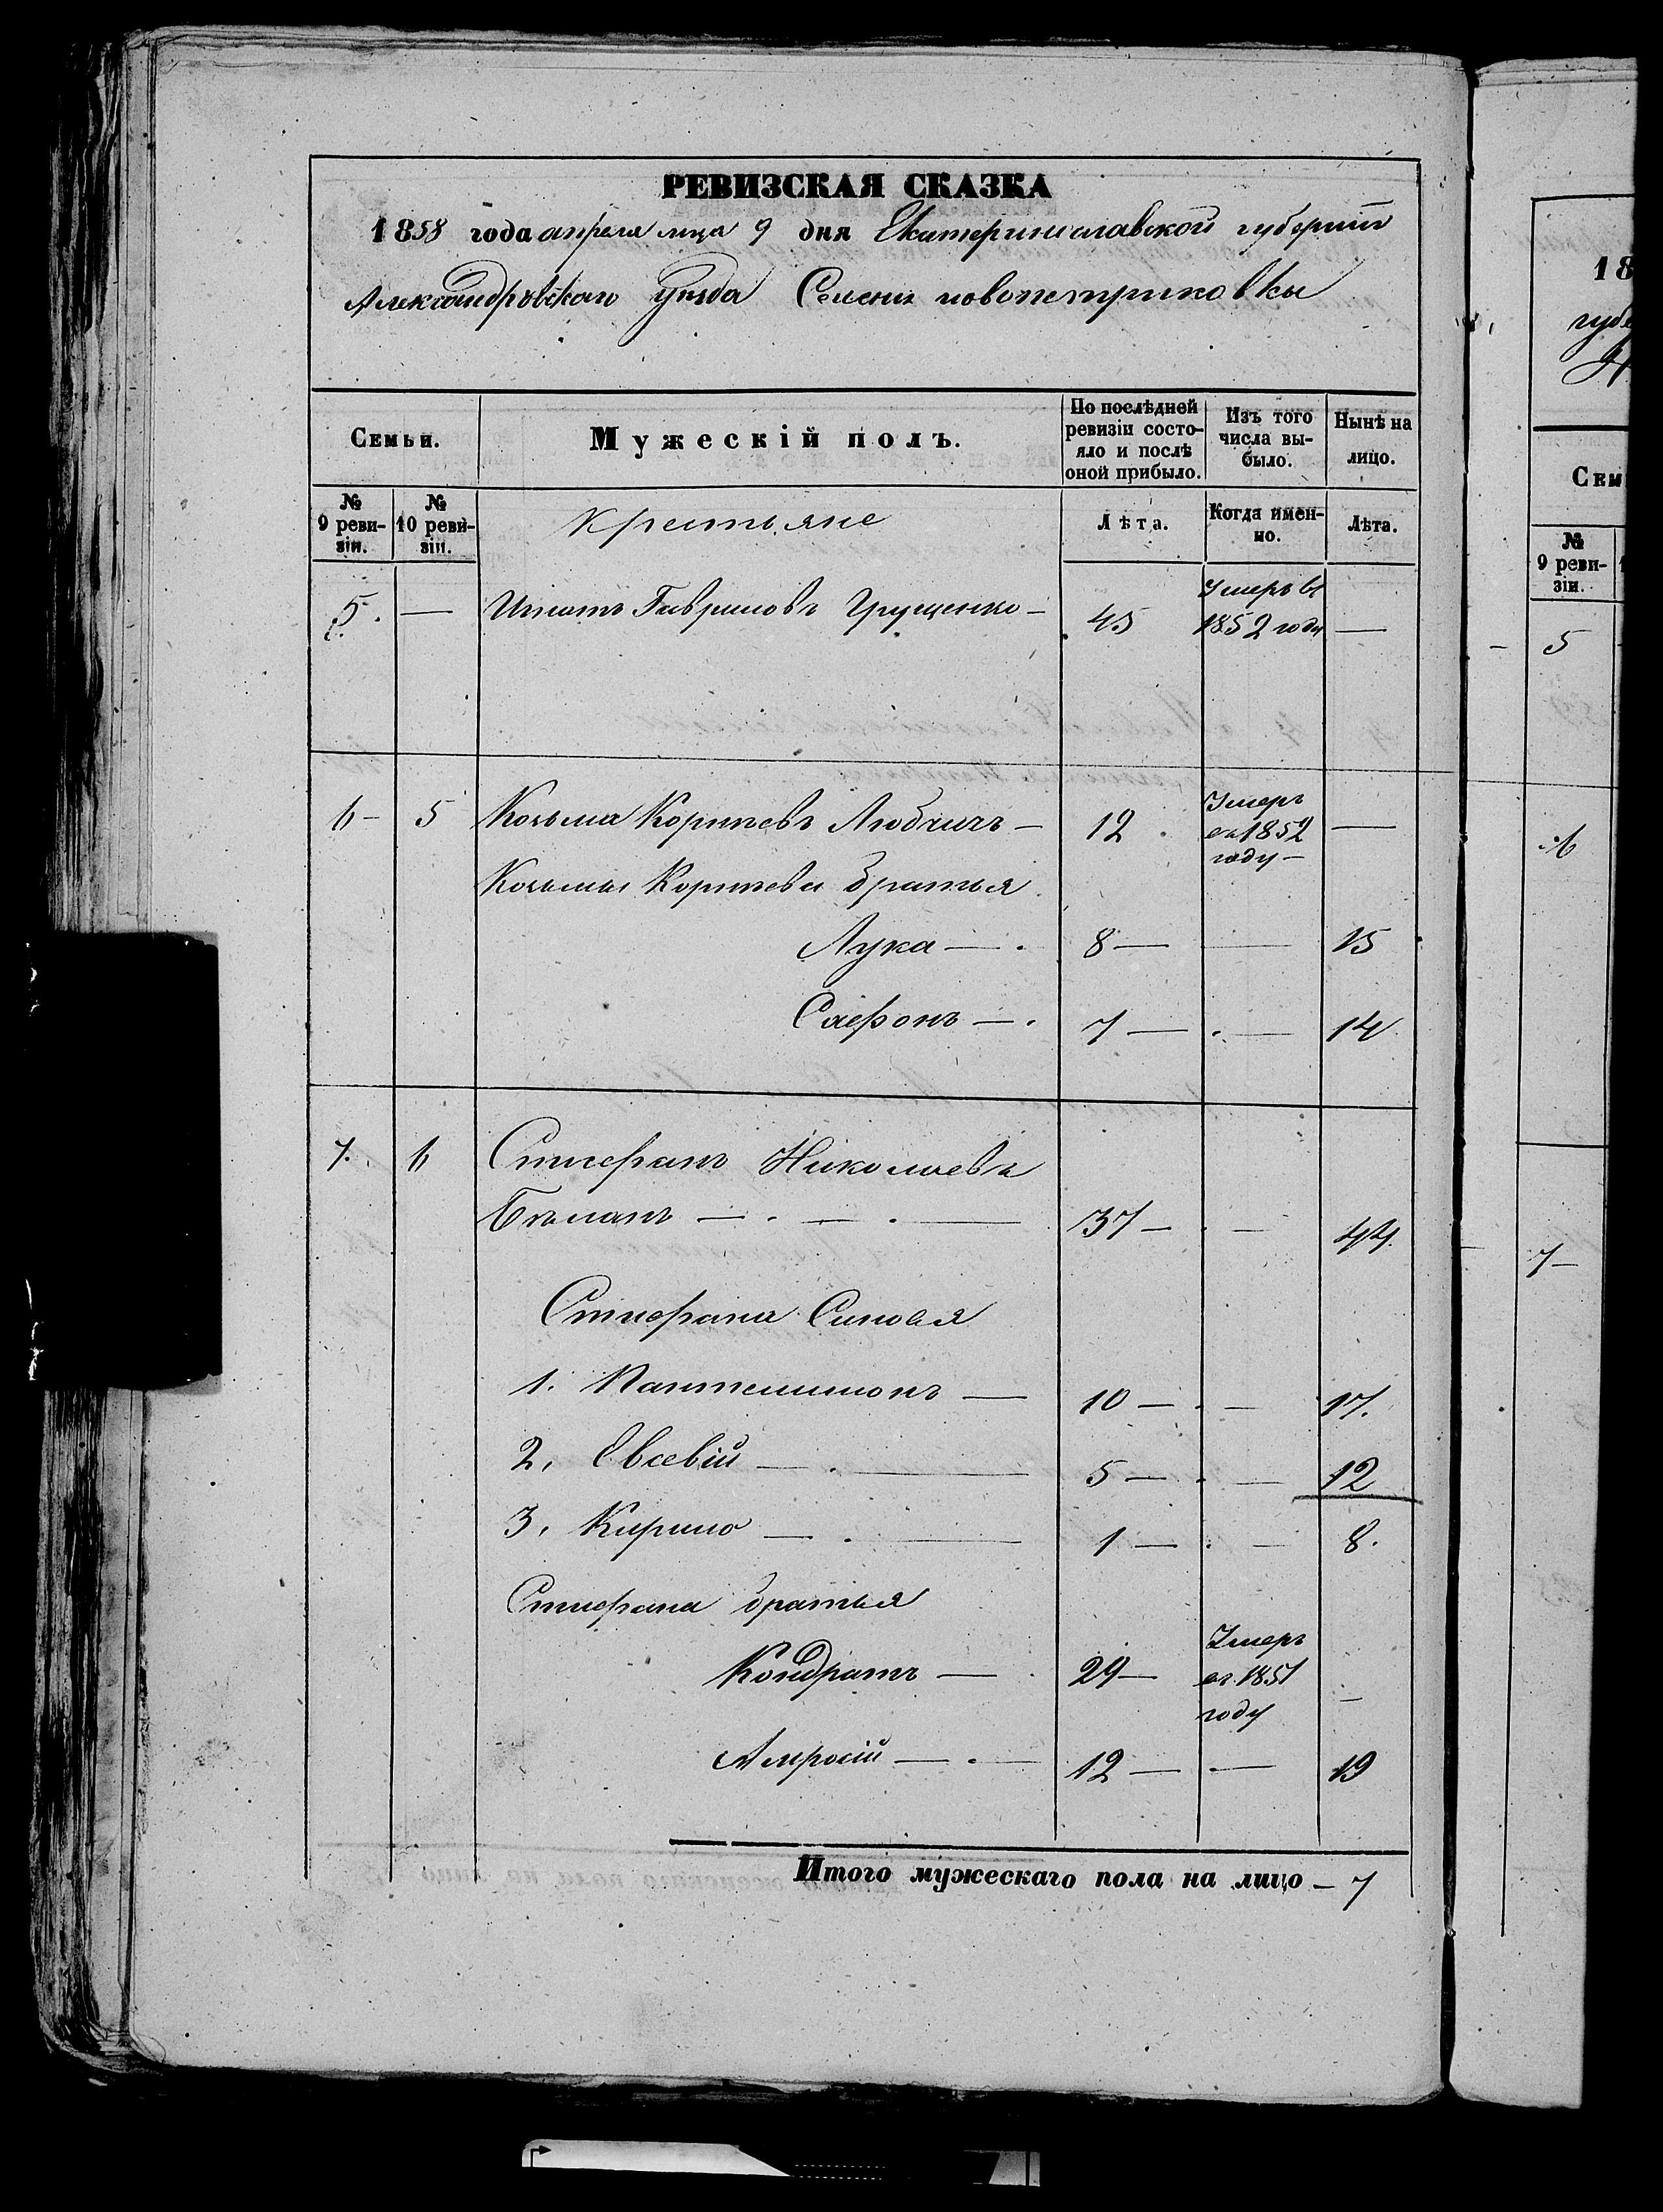 РЕВИЗСКАЯ СКАЗКА
1858 года апреля мца 9 дня Екатеринославской губернии
Александровскаго уезда Селения новопетриковки
Семьи. Мужескій полъ. По послѣдней ревизіи состояло и послѣ оной прибыло. Изъ того числа выбыло. Нынѣ на лицо.
№ 9 ревизіи. № 10 ревизіи. Крестьяне Лѣта. Когда именно. Лѣта.
5. — Игнатъ Гавриловъ Грущенко — 45 Умеръ въ 1852 году —
6 — 5 Козьма Корнѣевъ Любчичъ — 12 Умеръ въ 1852 году — —
Козьмы Корнѣева братья
Лука — 8 — — 15
Сафонъ — 7 — — 14
7. 6 Стефанъ Николаевъ
Бѣланъ — 37 — — 44
Стефана Синовя
1. Пантелимонъ — 10 — — 17.
2. Евсевій — 5 — — 12
3. Кирило — 1 — — 8.
Стефана братья
Кондратъ — 29 — Умеръ въ 1851 году —
Амросій — 12 — — 19
Итого мужескаго пола на лицо — 7
18
губе
Сем
№ 9 ревизіи.
5
6
7 —